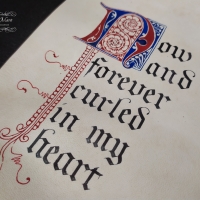 Now
and
forever
curled
in my
heart